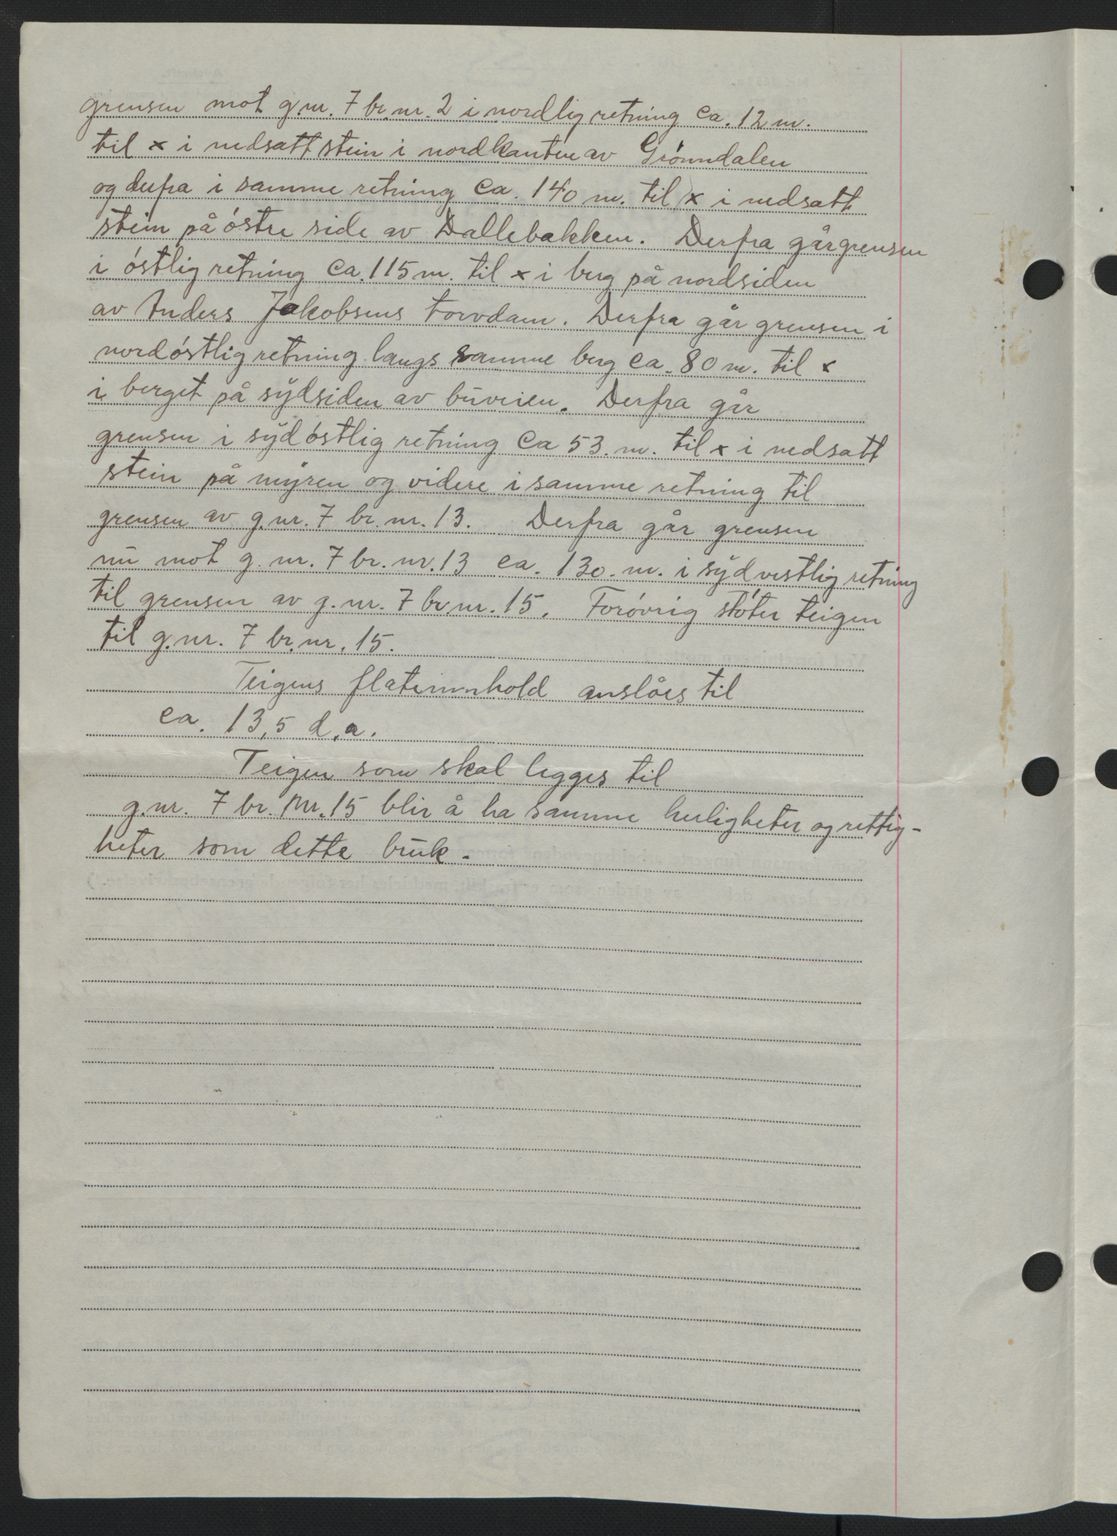 grensen mot g.nr. 7 br.nr. 2 i nordlig retning ca. 12 m.
til x i nedsatt stein i nordkanten av Grønndalen
og derfra i samme retning ca. 140 m. til x i nedsatt
stein på östre side av Dallebakken. Derfra går grensen
i östlig retning ca. 115 m. til x i berg på nordsiden
av Anders Jakobsens torvdam. Derfra går grensen i
nordöstlig retning langs samme berg ca. 80 m. til x
i berget på sydsiden av buveien. Derfra går
grensen i sydöstlig retning ca 53. m. til x i nedsatt
stein på myren og videre i samme retning til
grensen av g.nr. 7 br.nr. 13. Derfra går grensen
nu mot g.nr. 7 br.nr. 13 ca. 130. m. i sydvestlig retning
til grensen av g.nr. 7 br.nr. 15. Forövrig stöter teigen
til g.nr. 7 br.nr. 15.
Teigens flateinnhold anslåes til
ca. 13,5 d.a.
Teigen som skal legges til
g.nr. 7 br. Nr. 15 blir å ha samme herligheter og rettig-
heter som dette bruk.